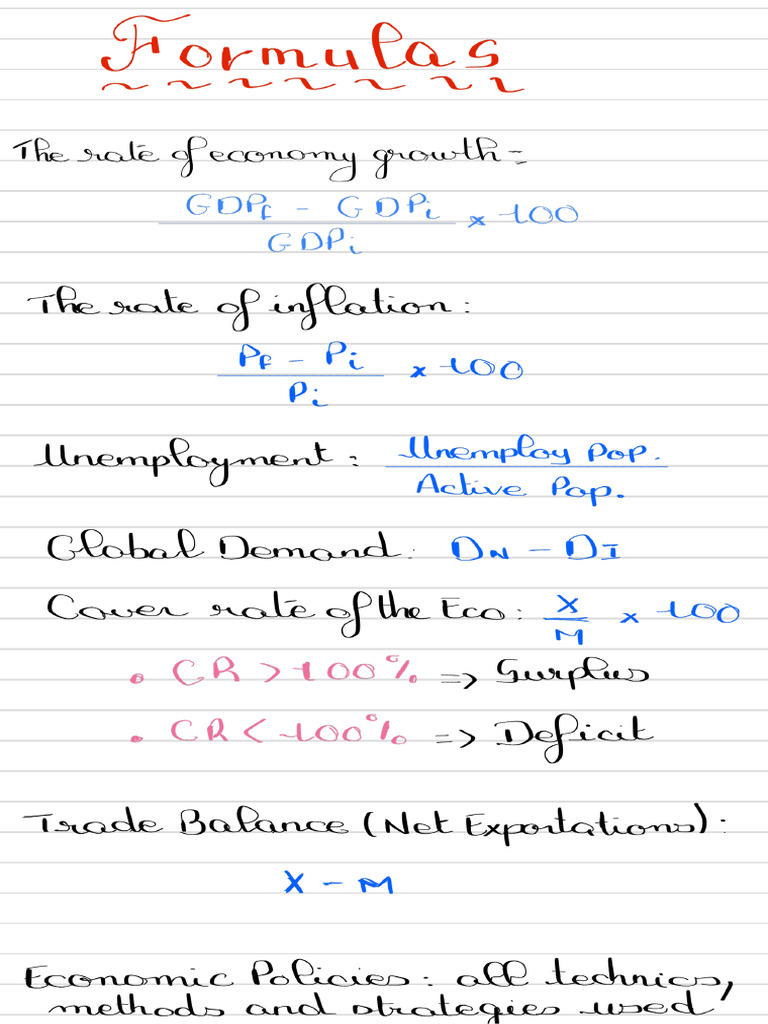 Formulas
The rate of economy growth =
GDPf - GDPi
x 100
GDPi
The rate of inflation :
Pf - Pi
x 100
Pi
Unemployment : Unemploy Pop.
Active Pop.
Global Demand : DN - DI
Cover rate of the Eco : X x 100
M
• CR > 100% => Surplus
• CR < 100% => Deficit
Trade Balance (Net Exportations) :
X - M
Economic Policies : all technics,
methods and strategies used